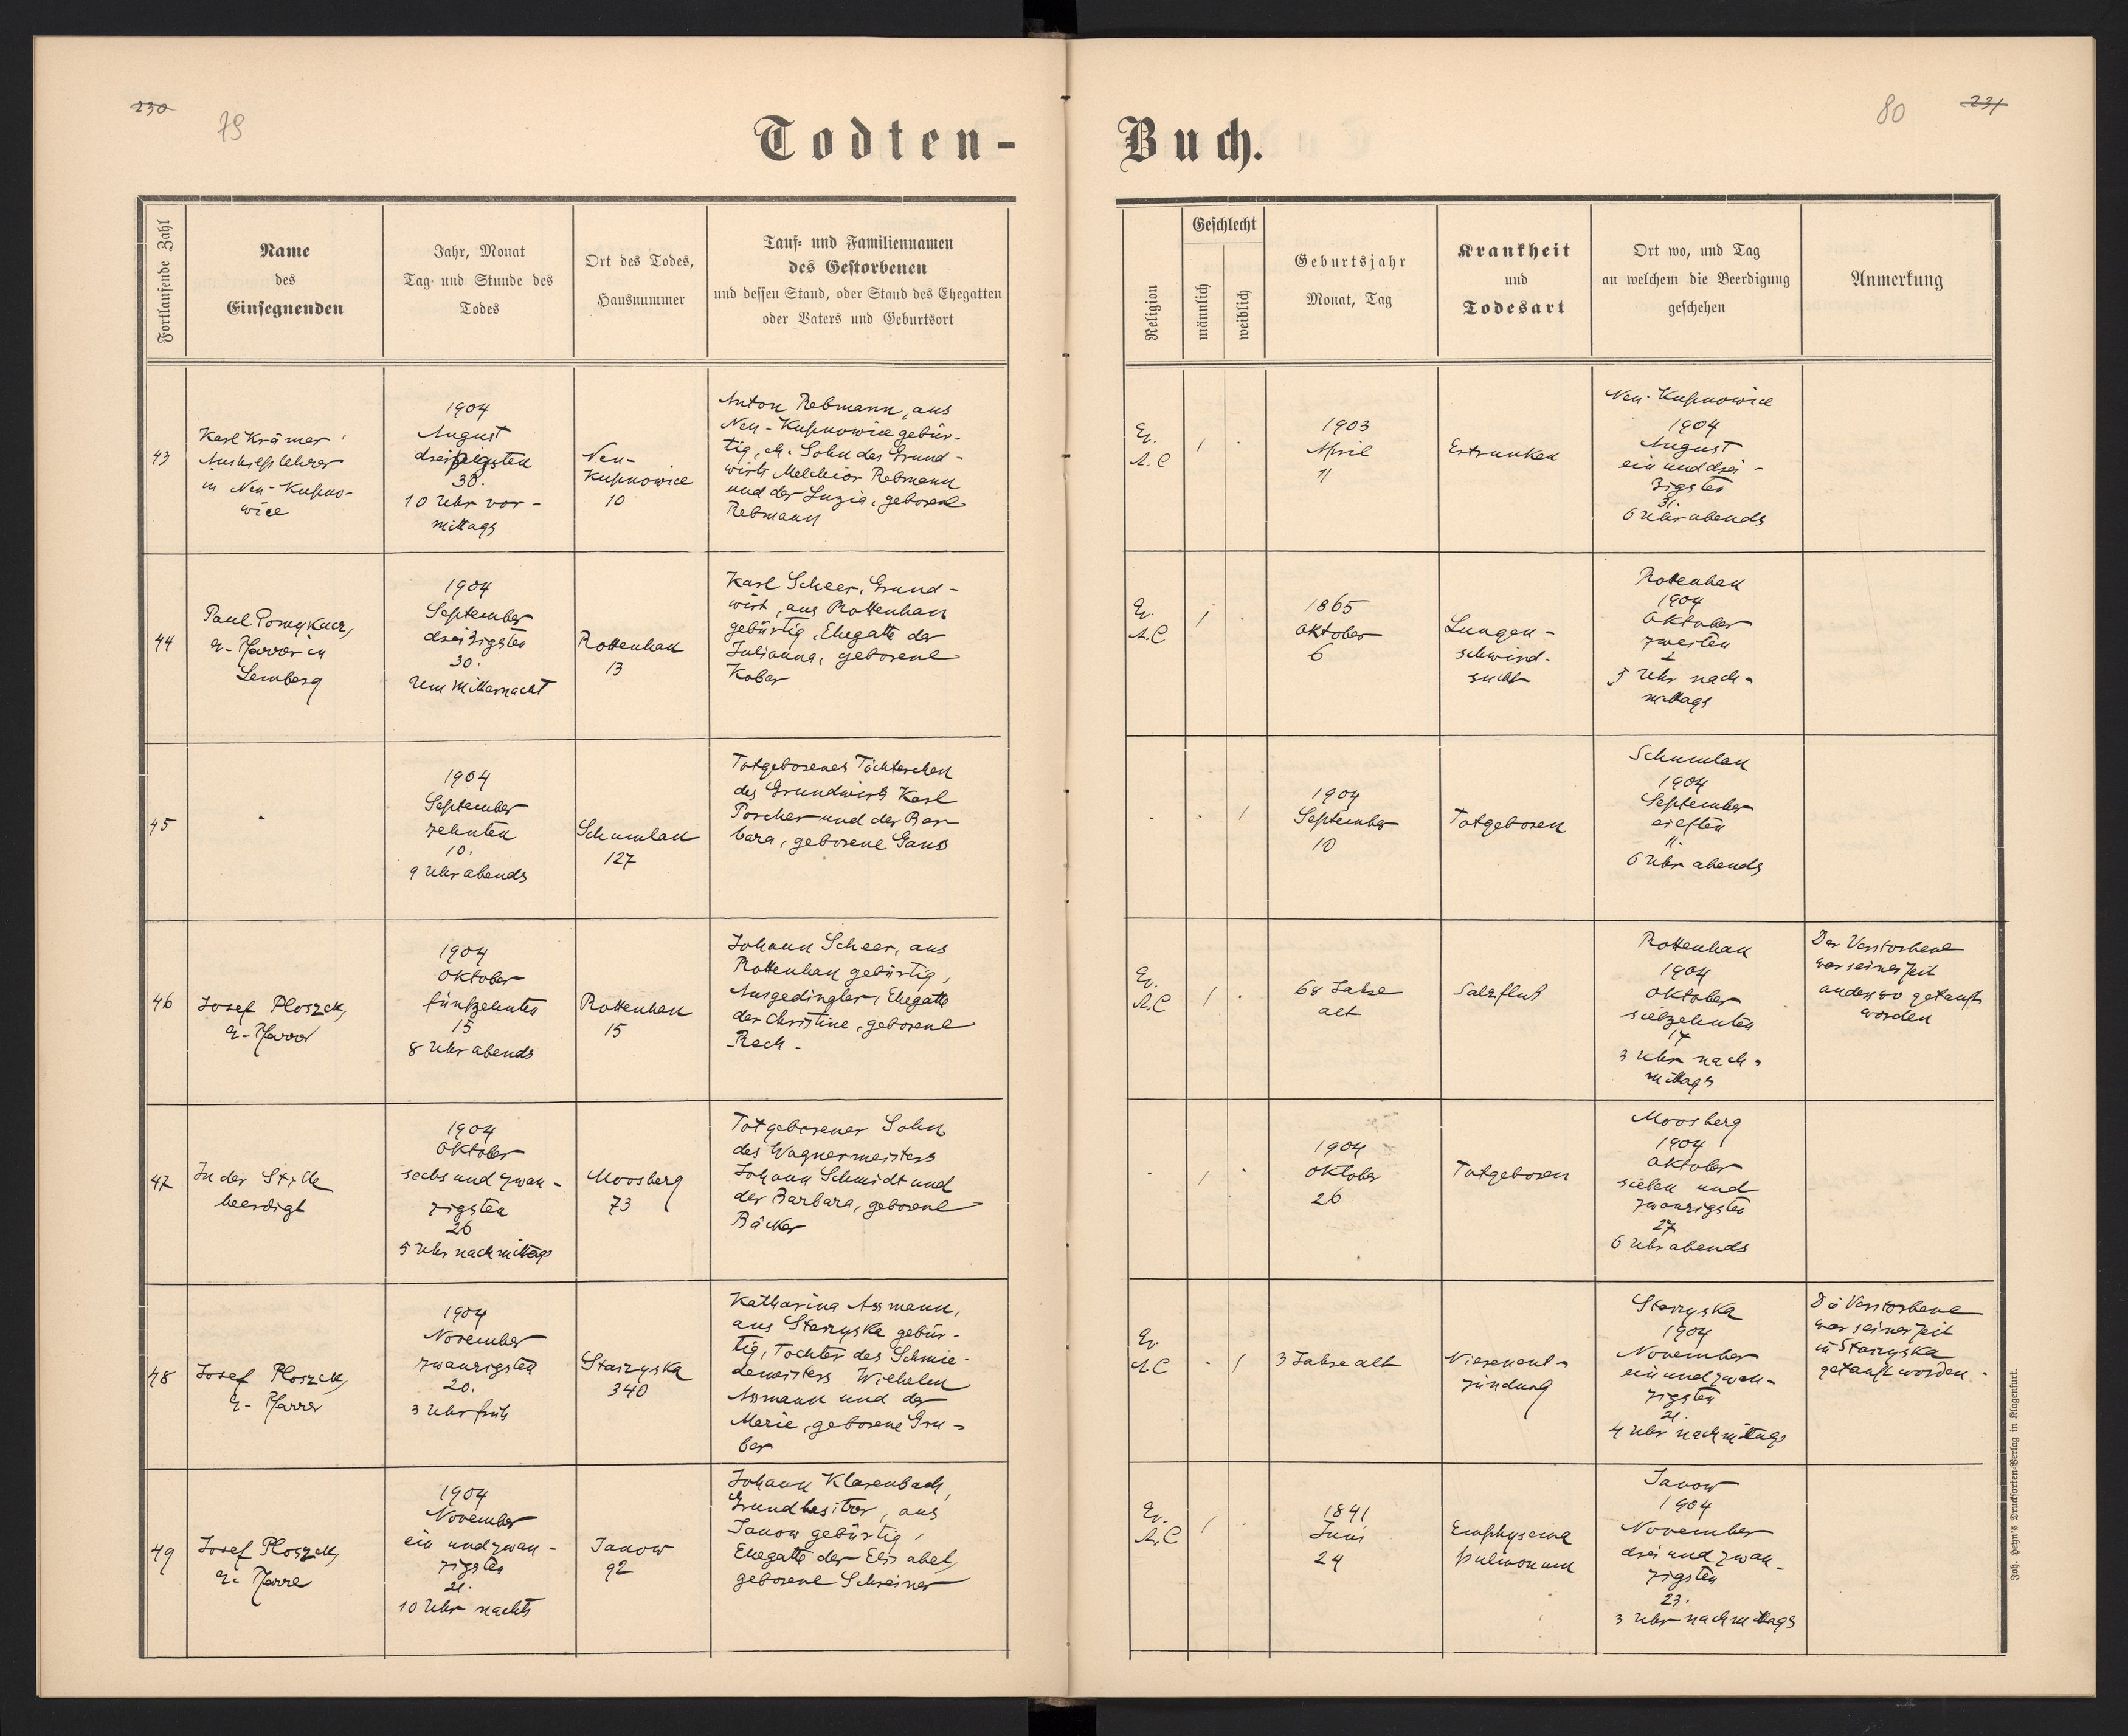 230
79
Todten-
Buch.
80
231
Fortlaufende Zahl
Name
des
Einsegnenden
Jahr, Monat
Tag- und Stunde des
Todes
Ort des Todes,
Hausnummer
Tauf- und Familiennamen
des Gestorbenen
und dessen Stand, oder Stand des Ehegatten
oder Vaters und Geburtsort
Religion
Geschlecht
männlich
weiblich
Geburtsjahr
Monat, Tag
Krankheit
und
Todesart
Ort wo, und Tag
an welchem die Beerdigung
geschehen
Anmerkung
43
Karl Krämer
Aushilfslehrer
in Neu-Kupno-
wice
1904
August
dreißigsten
30.
10 Uhr vor-
mittags
Neu-
Kupnowice
10
Anton Rebmann, aus
Neu-Kupnowice gebür-
tig, eh. Sohn des Grund-
wirts Melchior Rebmann
und der Luzia, geborene
Rebmann
Ev.
A.C
1
1903
April
11
Ertrunken
Neu-Kupnowice
1904
August
ein und drei-
zigsten
31.
6 Uhr abends
44
Paul Pomykacz,
ev. Pfarrer in
Lemberg
1904
September
dreizigsten
30.
Um Mitternacht
Rottenhan
13
Karl Scheer, Grund-
wirt, aus Rottenhan
gebürtig, Ehegatte der
Julianna, geborene
Kober
Ev.
A.C
1
1865
Oktober
6
Lungen-
schwind-
sucht
Rottenhan
1904
Oktober
zweiten
2
5 Uhr nach-
mittags
45
1904
September
zehnten
10.
9 Uhr abends
Schumlau
127
Totgeborenes Töchterchen
des Grundwirts Karl
Porcher und der Bar-
bara, geborene Gans
1
1904
September
10
Totgeboren
Schumlau
1904
September
eilften
11.
6 Uhr abends
46
Josef Ploszek,
ev. Pfarrer
1904
Oktober
fünfzehnten
15
8 Uhr abends
Rottenhan
15
Johann Scheer, aus
Rottenhan gebürtig,
Ausgedingler, Ehegatte
der Christine, geborene
Rech.
Ev.
A.C
1
68 Jahre
alt
Salzfluß
Rottenhan
1904
Oktober
siebzehnten
17
3 Uhr nach-
mittags
Der Verstorbene
war seiner Zeit
anderswo getauft
worden
47
In der Stille
beerdigt
1904
Oktober
sechs und zwan-
zigsten
26
5 Uhr nachmittags
Moosberg
73
Totgeborener Sohn
des Wagnermeisters
Johann Schmidt und
der Barbara, geborene
Bäcker
1
1904
Oktober
26
Totgeboren
Moosberg
1904
Oktober
sieben und
zwanzigsten
27
6 Uhr abends
48
Josef Ploszek,
ev. Pfarrer
1904
November
zwanzigsten
20.
3 Uhr früh
Starzyska
340
Katharina Assmann,
aus Starzyska gebür-
tig, Tochter des Schmie-
demeisters Wilhelm
Assmann und der
Marie, geborene Gru-
ber
Ev.
A.C
1
3 Jahre alt
Nierenent-
zündung
Starzyska
1904
November
ein und zwan-
zigsten
21.
4 Uhr nachmittags
Die Verstorbene
war seiner Zeit
in Starzyska
getauft worden.
49
Josef Ploszek,
ev. Pfarre
1904
November
ein und zwan-
zigsten
21.
10 Uhr nachts
Janow
92
Johann Klasenbach,
Grundbesitzer, aus
Janow gebürtig,
Ehegatte der Elisabet,
geborene Schreiner
Ev.
A.C
1
1841
Juni
24
Emphysema
pulmonum
Janow
1904
November
drei und zwan-
zigsten
23.
3 Uhr nachmittags
Joh. Heyn's Drucksorten-Verlag in Klagenfurt.